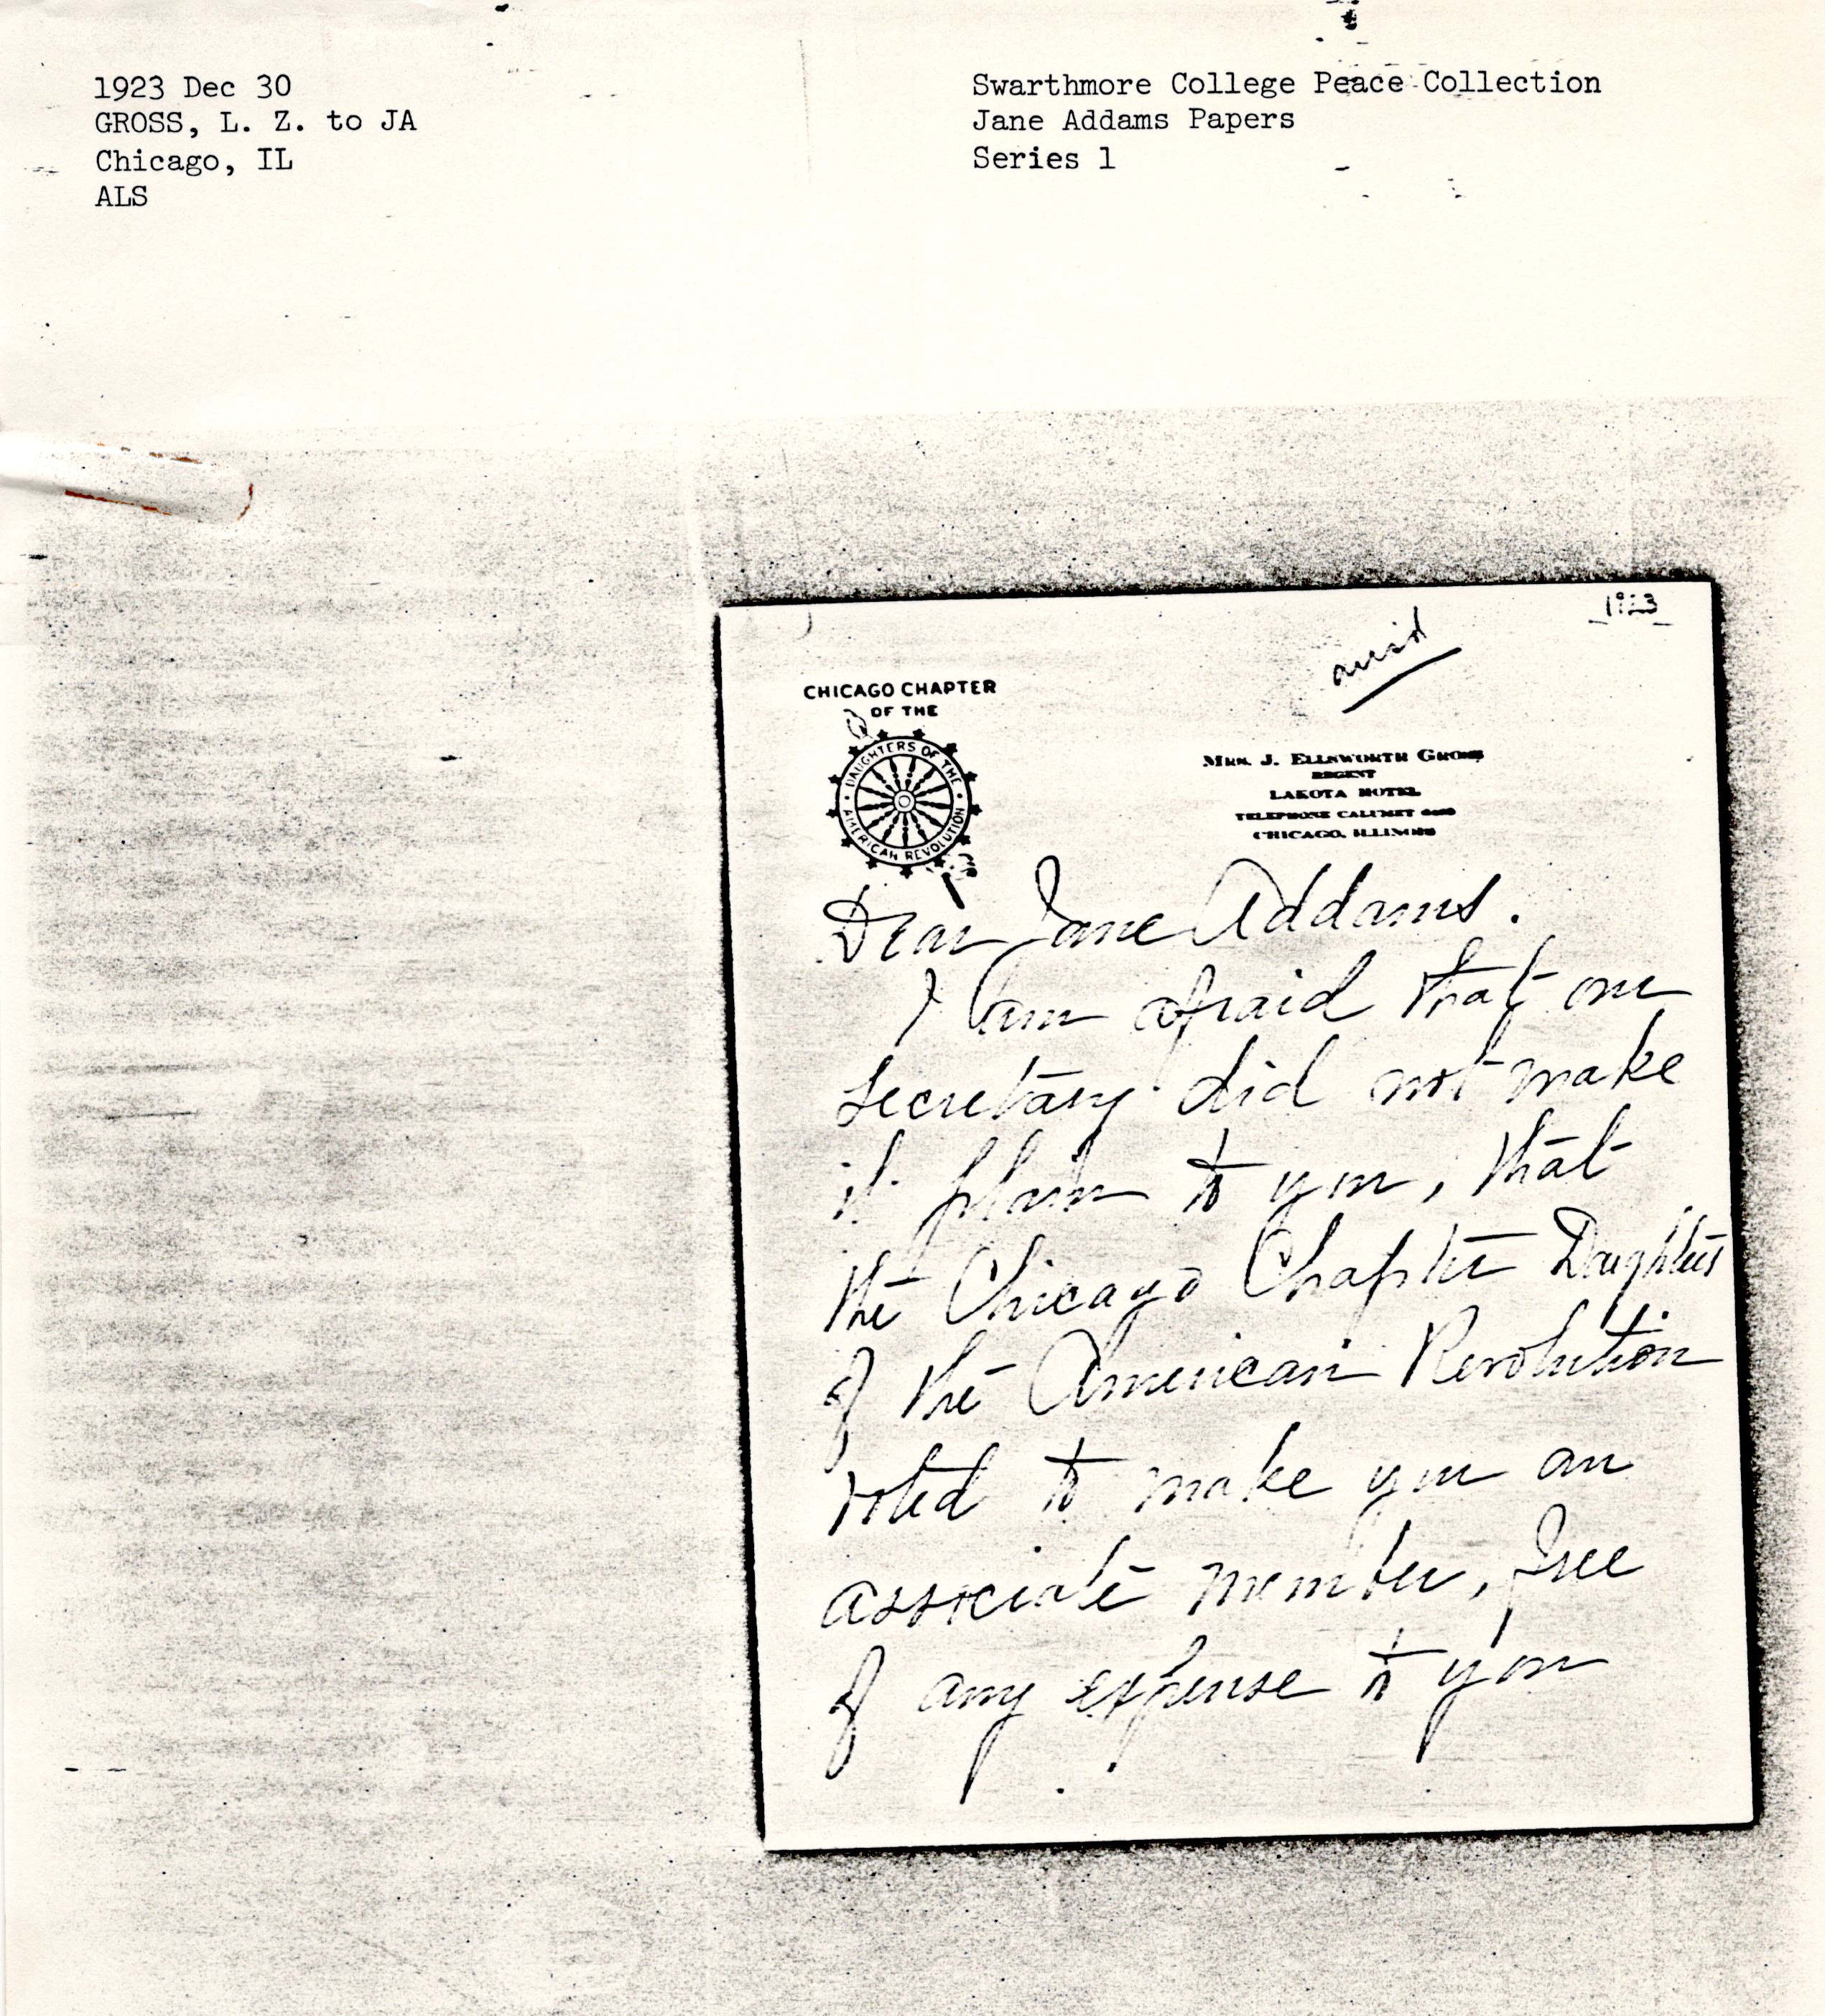 1923 Dec 30
GROSS, L. Z. to JA
Chicago, IL
ALS
Swarthmore College Peace Collection
Jane Addams Papers
Series 1
1923
CHICAGO CHAPTER
OF THE
DAUGHTERS OF THE
AMERICAN REVOLUTION
MRS. J. ELLSWORTH GROSS
REGENT
LAKOTA HOTEL
TELEPHONE CALUMET
CHICAGO, ILLINOIS
Dear Jane Addams.
I am afraid that our
secretary did not make
it plain to you, that
the Chicago Chapter Daughters
of the American Revolution
voted to make you an
associate member, free
of any expense to you